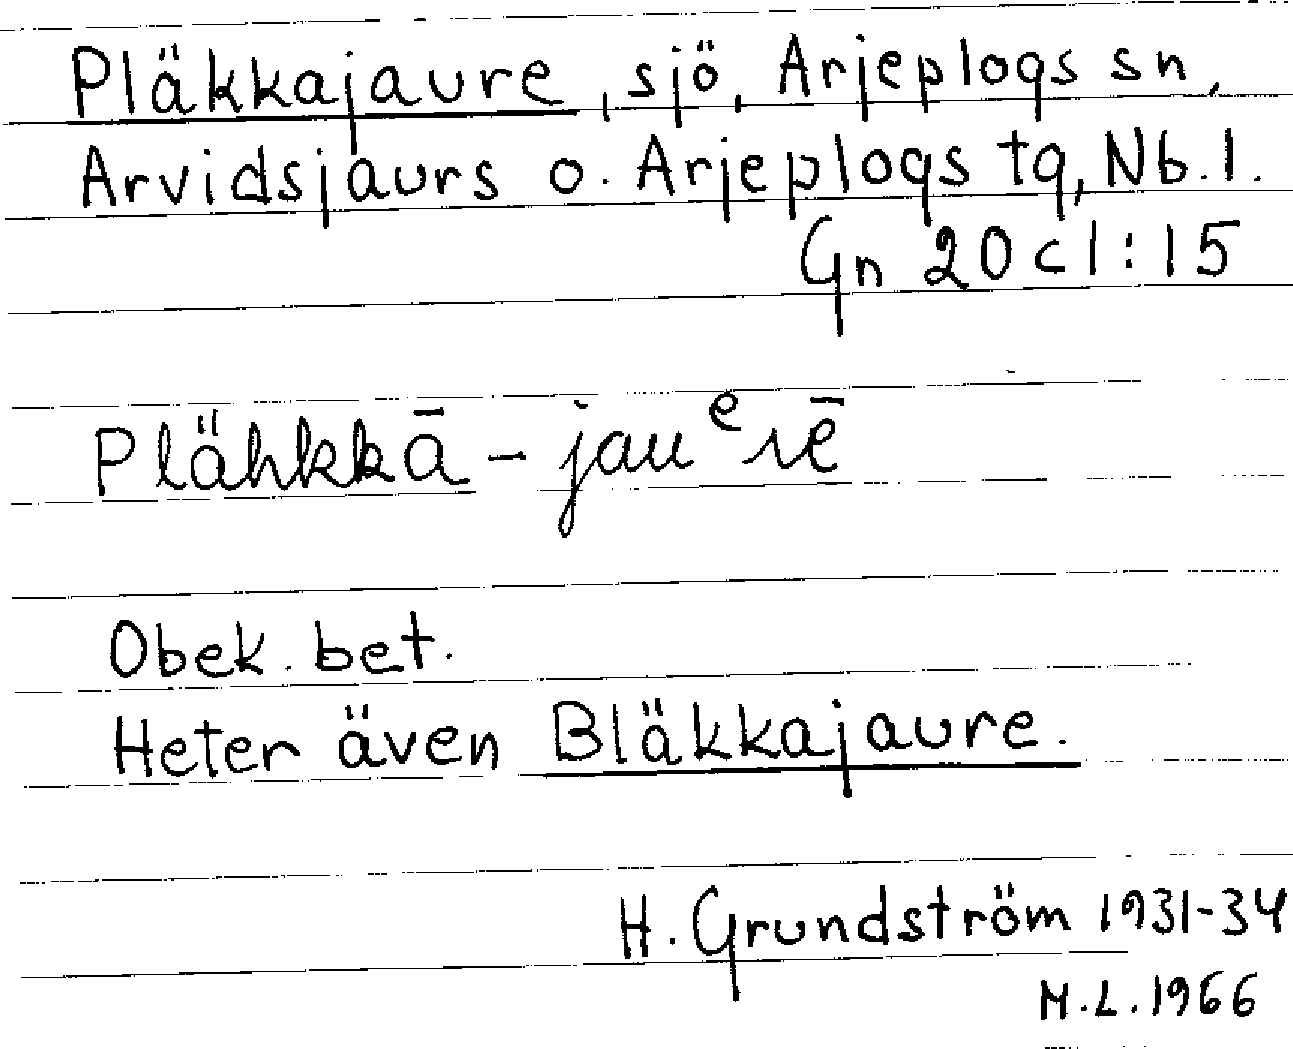 Pläkkajaure, sjö, Arjeplogs sn,
Arvidsjaurs o. Arjeplogs tg, Nb. l.
Gn 20 c 1:15
Plähkkā - jauᵉrē
Obek. bet.
Heter även Bläkkajaure.
H. Grundström 1931-34
M.L. 1966